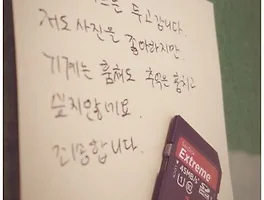 드를 두고갑니다.
저도 사진을 좋아하지만,
기계는 훔쳐도 추억은 훔치고
싶지않네요.
죄송합니다.
SanDisk
Extreme
45MB/s